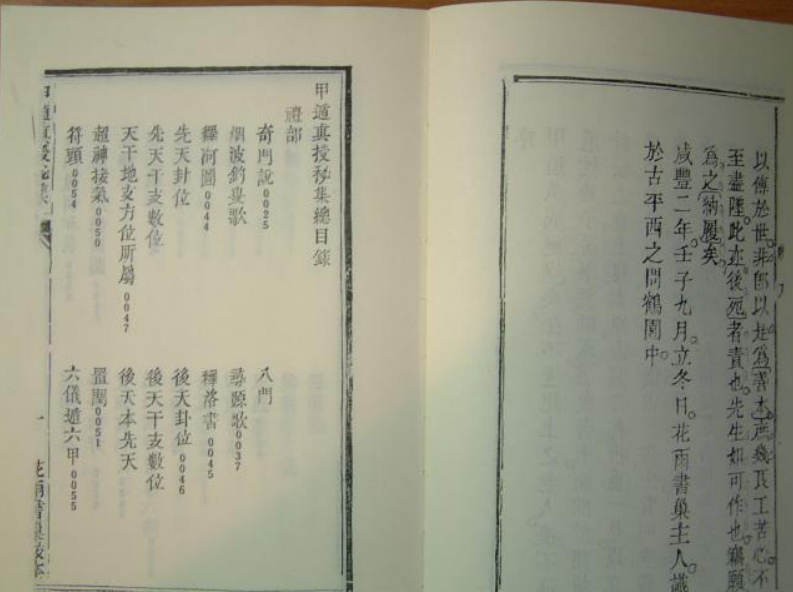 以傳於世。非卽以是爲善本。庶幾良工苦心不
至盡墜。此亦後死者責也。先生如可作也。竊願
爲之納履矣
咸豐二年壬子九月。立冬日。花雨書巢主人識
於古平西之問鶴園中。
甲遁真授秘集總目錄
禮部
奇門說0025 八門
烟波釣叟歌 尋源歌0037
釋河圖0044 釋洛書0045
先天卦位 後天卦位0046
先天干支數位 後天干支數位
天干地支方位所屬0047 後天本先天
超神接氣0050 置閏0051
符頭0054 六儀遁六甲0055
甲遁真授秘集 一 花雨書巢校本